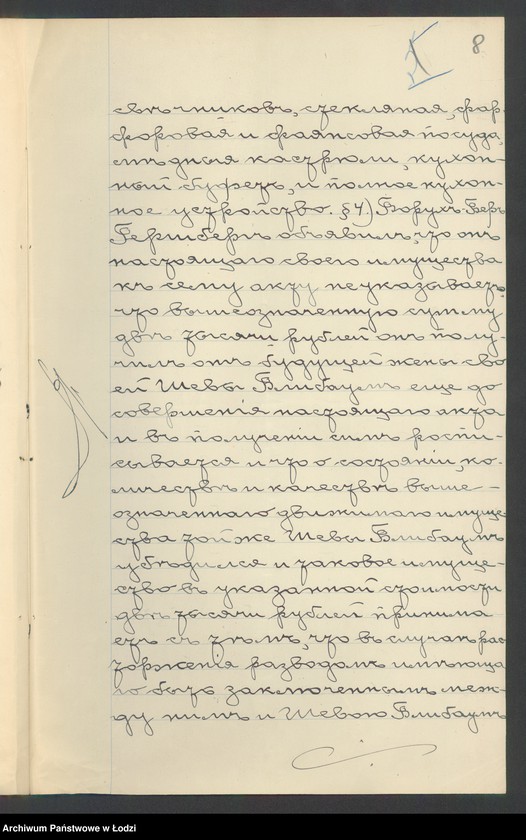 8
свѣчниковъ, стекляная, фар-
форовая и фаянсовая посуда,
мѣдныя кастрюли, кухон-
ный буфетъ, и полное кухон-
ное устройство. § 4) Борухъ-Беръ
объявилъ, что онъ
настоящаго своего имущества
къ сему акту не указываетъ,
что вышеозначенную сумму
двѣ тысячи рублей онъ полу-
чилъ отъ будущей жены сво-
ей Шевы Блибаумъ еще до
совершенія настоящаго акта
и въ полученіи симъ роспи-
сывается и что о состояніи, ко-
личествѣ и качествѣ выше-
означеннаго движимаго имуще-
ства той же Шевы Блибаумъ
убѣдился и таковое имуще-
ство въ указанной стоимости
двѣ тысячи рублей принима-
етъ съ тѣмъ, что въ случаѣ рас-
торженія разводомъ имѣюща-
го быть заключеннымъ меж-
ду нимъ и Шевою Блибаумъ
Archiwum Państwowe w Łodzi